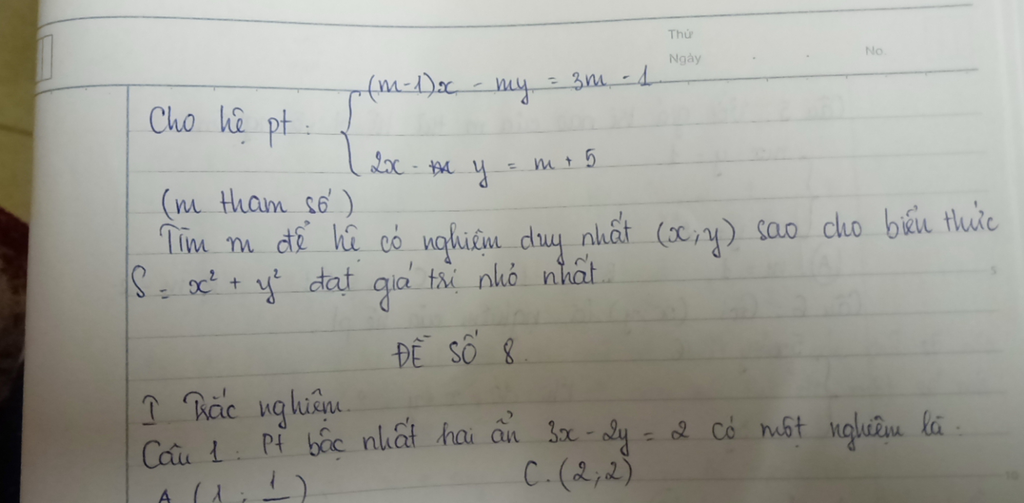 Thứ
Ngày No
Cho hệ pt: { (m-1)x - my = 3m - 1
2x - y = m + 5
(m tham số)
Tìm m để hệ có nghiệm duy nhất (x;y) sao cho biểu thức
S = x² + y² đạt giá trị nhỏ nhất.
ĐỀ SỐ 8.
I Trắc nghiệm.
Câu 1: Pt bậc nhất hai ẩn 3x - 2y = 2 có một nghiệm là:
A (1; 1 ) C. (2;2)